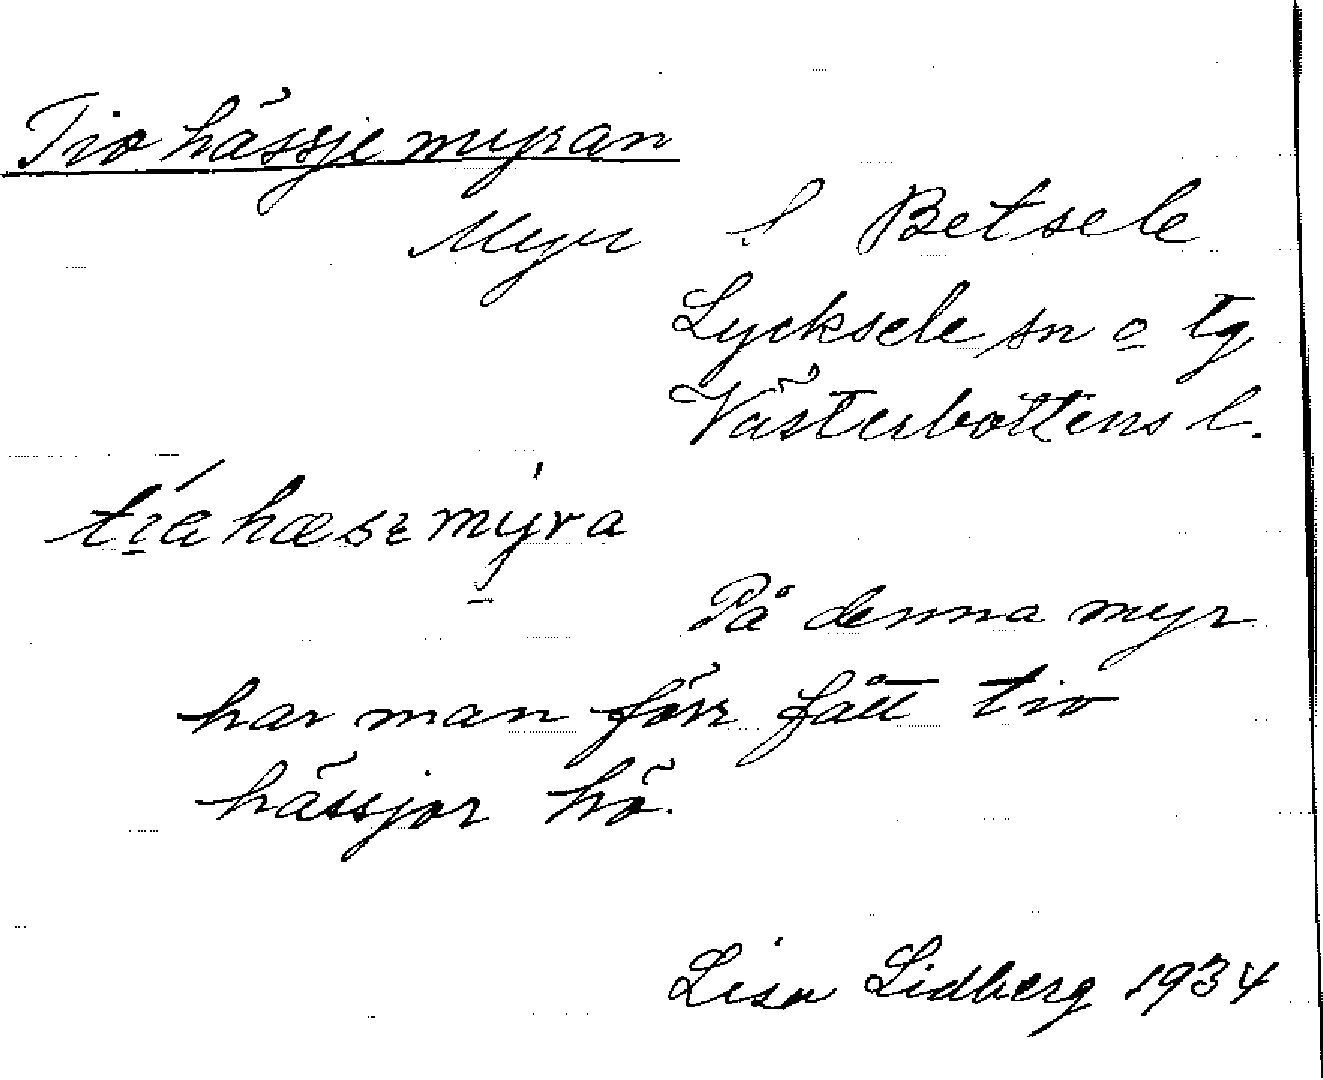 Tiohässjemyran
Myr i Betsele
Lycksele sn o tg
Västerbottens l.
På denna myr
har man förr fått tio
hässjor hö.
Lisa Lidberg 1934